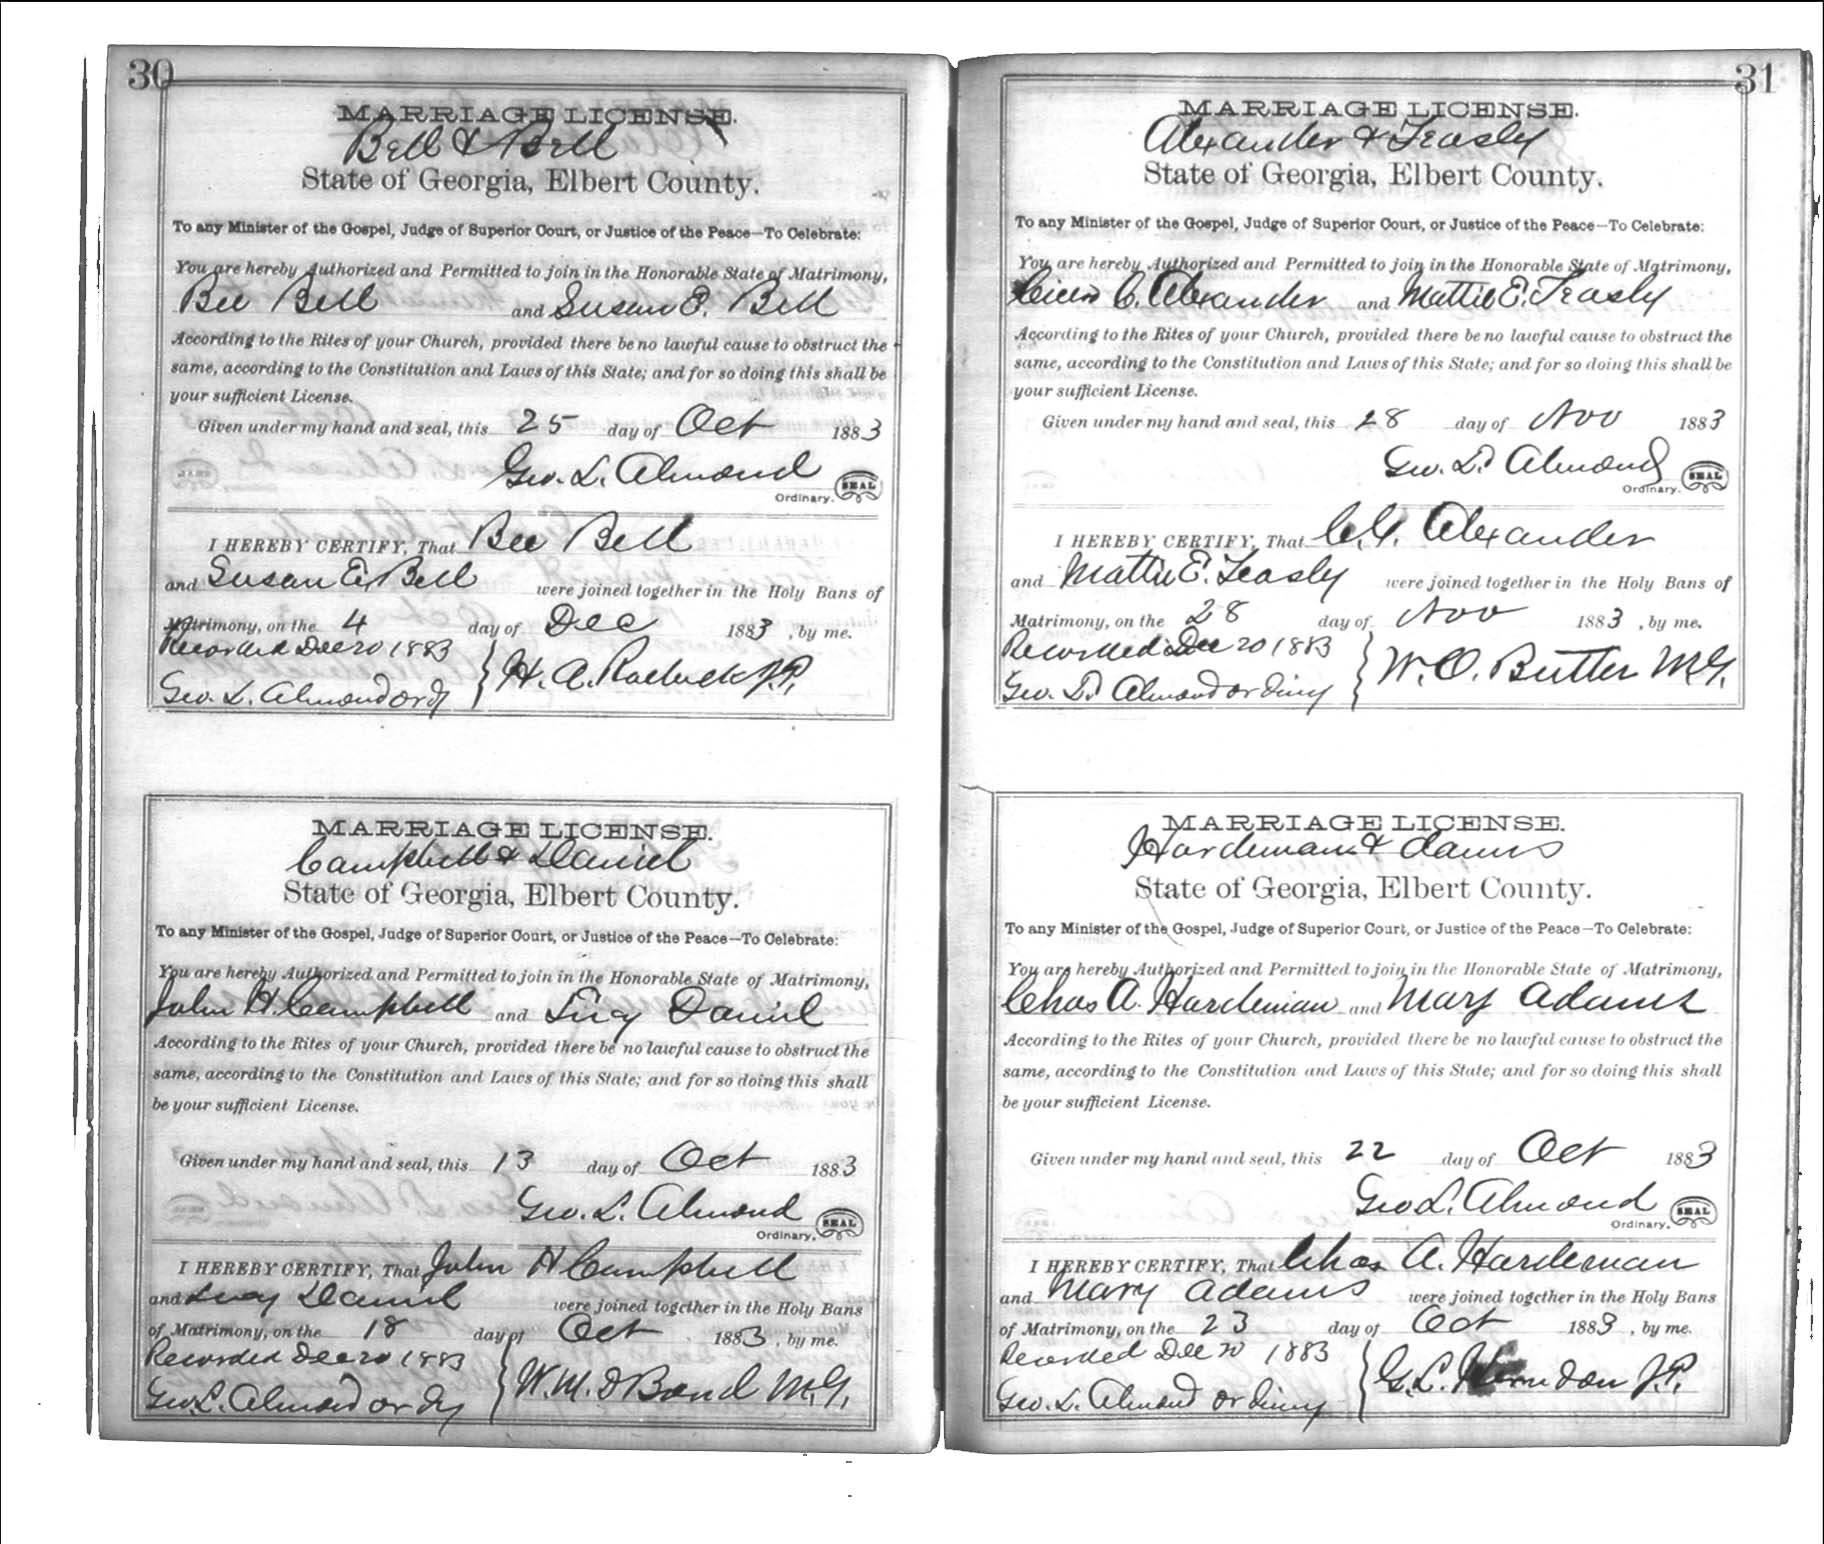 30
MARRIAGE LICENSE.
Bell & Bell
State of Georgia, Elbert County.
To any Minister of the Gospel, Judge of Superior Court, or Justice of the Peace—To Celebrate:
You are hereby Authorized and Permitted to join in the Honorable State of Matrimony,
Bee Bell and Susan E. Bell
According to the Rites of your Church, provided there be no lawful cause to obstruct the
same, according to the Constitution and Laws of this State; and for so doing this shall be
your sufficient License.
Given under my hand and seal, this 25 day of Oct 1883
Geo. L. Almond
Ordinary. SEAL
I HEREBY CERTIFY, That Bee Bell
and Susan E. Bell were joined together in the Holy Bans of
Matrimony, on the 4 day of Dec 1883, by me.
Recorded Dec 20 1883
Geo. L. Almond ordy H. A. Roebuck J.P.
MARRIAGE LICENSE.
Campbell & Daniel
State of Georgia, Elbert County.
To any Minister of the Gospel, Judge of Superior Court, or Justice of the Peace—To Celebrate:
You are hereby Authorized and Permitted to join in the Honorable State of Matrimony,
John H. Campbell and Lucy Daniel
According to the Rites of your Church, provided there be no lawful cause to obstruct the
same, according to the Constitution and Laws of this State; and for so doing this shall
be your sufficient License.
Given under my hand and seal, this 13 day of Oct 1883
Geo. L. Almond
Ordinary. SEAL
I HEREBY CERTIFY, That John H Campbell
and Lucy Daniel were joined together in the Holy Bans
of Matrimony, on the 18 day of Oct 1883, by me.
Recorded Dec 20 1883
Geo. L. Almond ordy W. M. D Bond M.G.
31
MARRIAGE LICENSE.
Alexander & Teasly
State of Georgia, Elbert County.
To any Minister of the Gospel, Judge of Superior Court, or Justice of the Peace—To Celebrate:
You are hereby Authorized and Permitted to join in the Honorable State of Matrimony,
C. Alexander and Mattie E. Teasly
According to the Rites of your Church, provided there be no lawful cause to obstruct the
same, according to the Constitution and Laws of this State; and for so doing this shall be
your sufficient License.
Given under my hand and seal, this 28 day of Nov 1883
Geo. L. Almond
Ordinary. SEAL
I HEREBY CERTIFY, That Alexander
and Mattie E. Teasly were joined together in the Holy Bans of
Matrimony, on the 28 day of Nov 1883, by me.
Recorded Dec 20 1883
Geo. L. Almond ordinry W. O. Butler M.G.
MARRIAGE LICENSE.
Hardeman & Adams
State of Georgia, Elbert County.
To any Minister of the Gospel, Judge of Superior Court, or Justice of the Peace—To Celebrate:
You are hereby Authorized and Permitted to join in the Honorable State of Matrimony,
Chas A. Hardeman and Mary Adams
According to the Rites of your Church, provided there be no lawful cause to obstruct the
same, according to the Constitution and Laws of this State; and for so doing this shall
be your sufficient License.
Given under my hand and seal, this 22 day of Oct 1883
Geo L. Almond
Ordinary. SEAL
I HEREBY CERTIFY, That Chas A. Hardeman
and Mary Adams were joined together in the Holy Bans
of Matrimony, on the 23 day of Oct 1883, by me.
Recorded Dec 20 1883
Geo. L. Almond ordinry G. L. Herndon J.P.